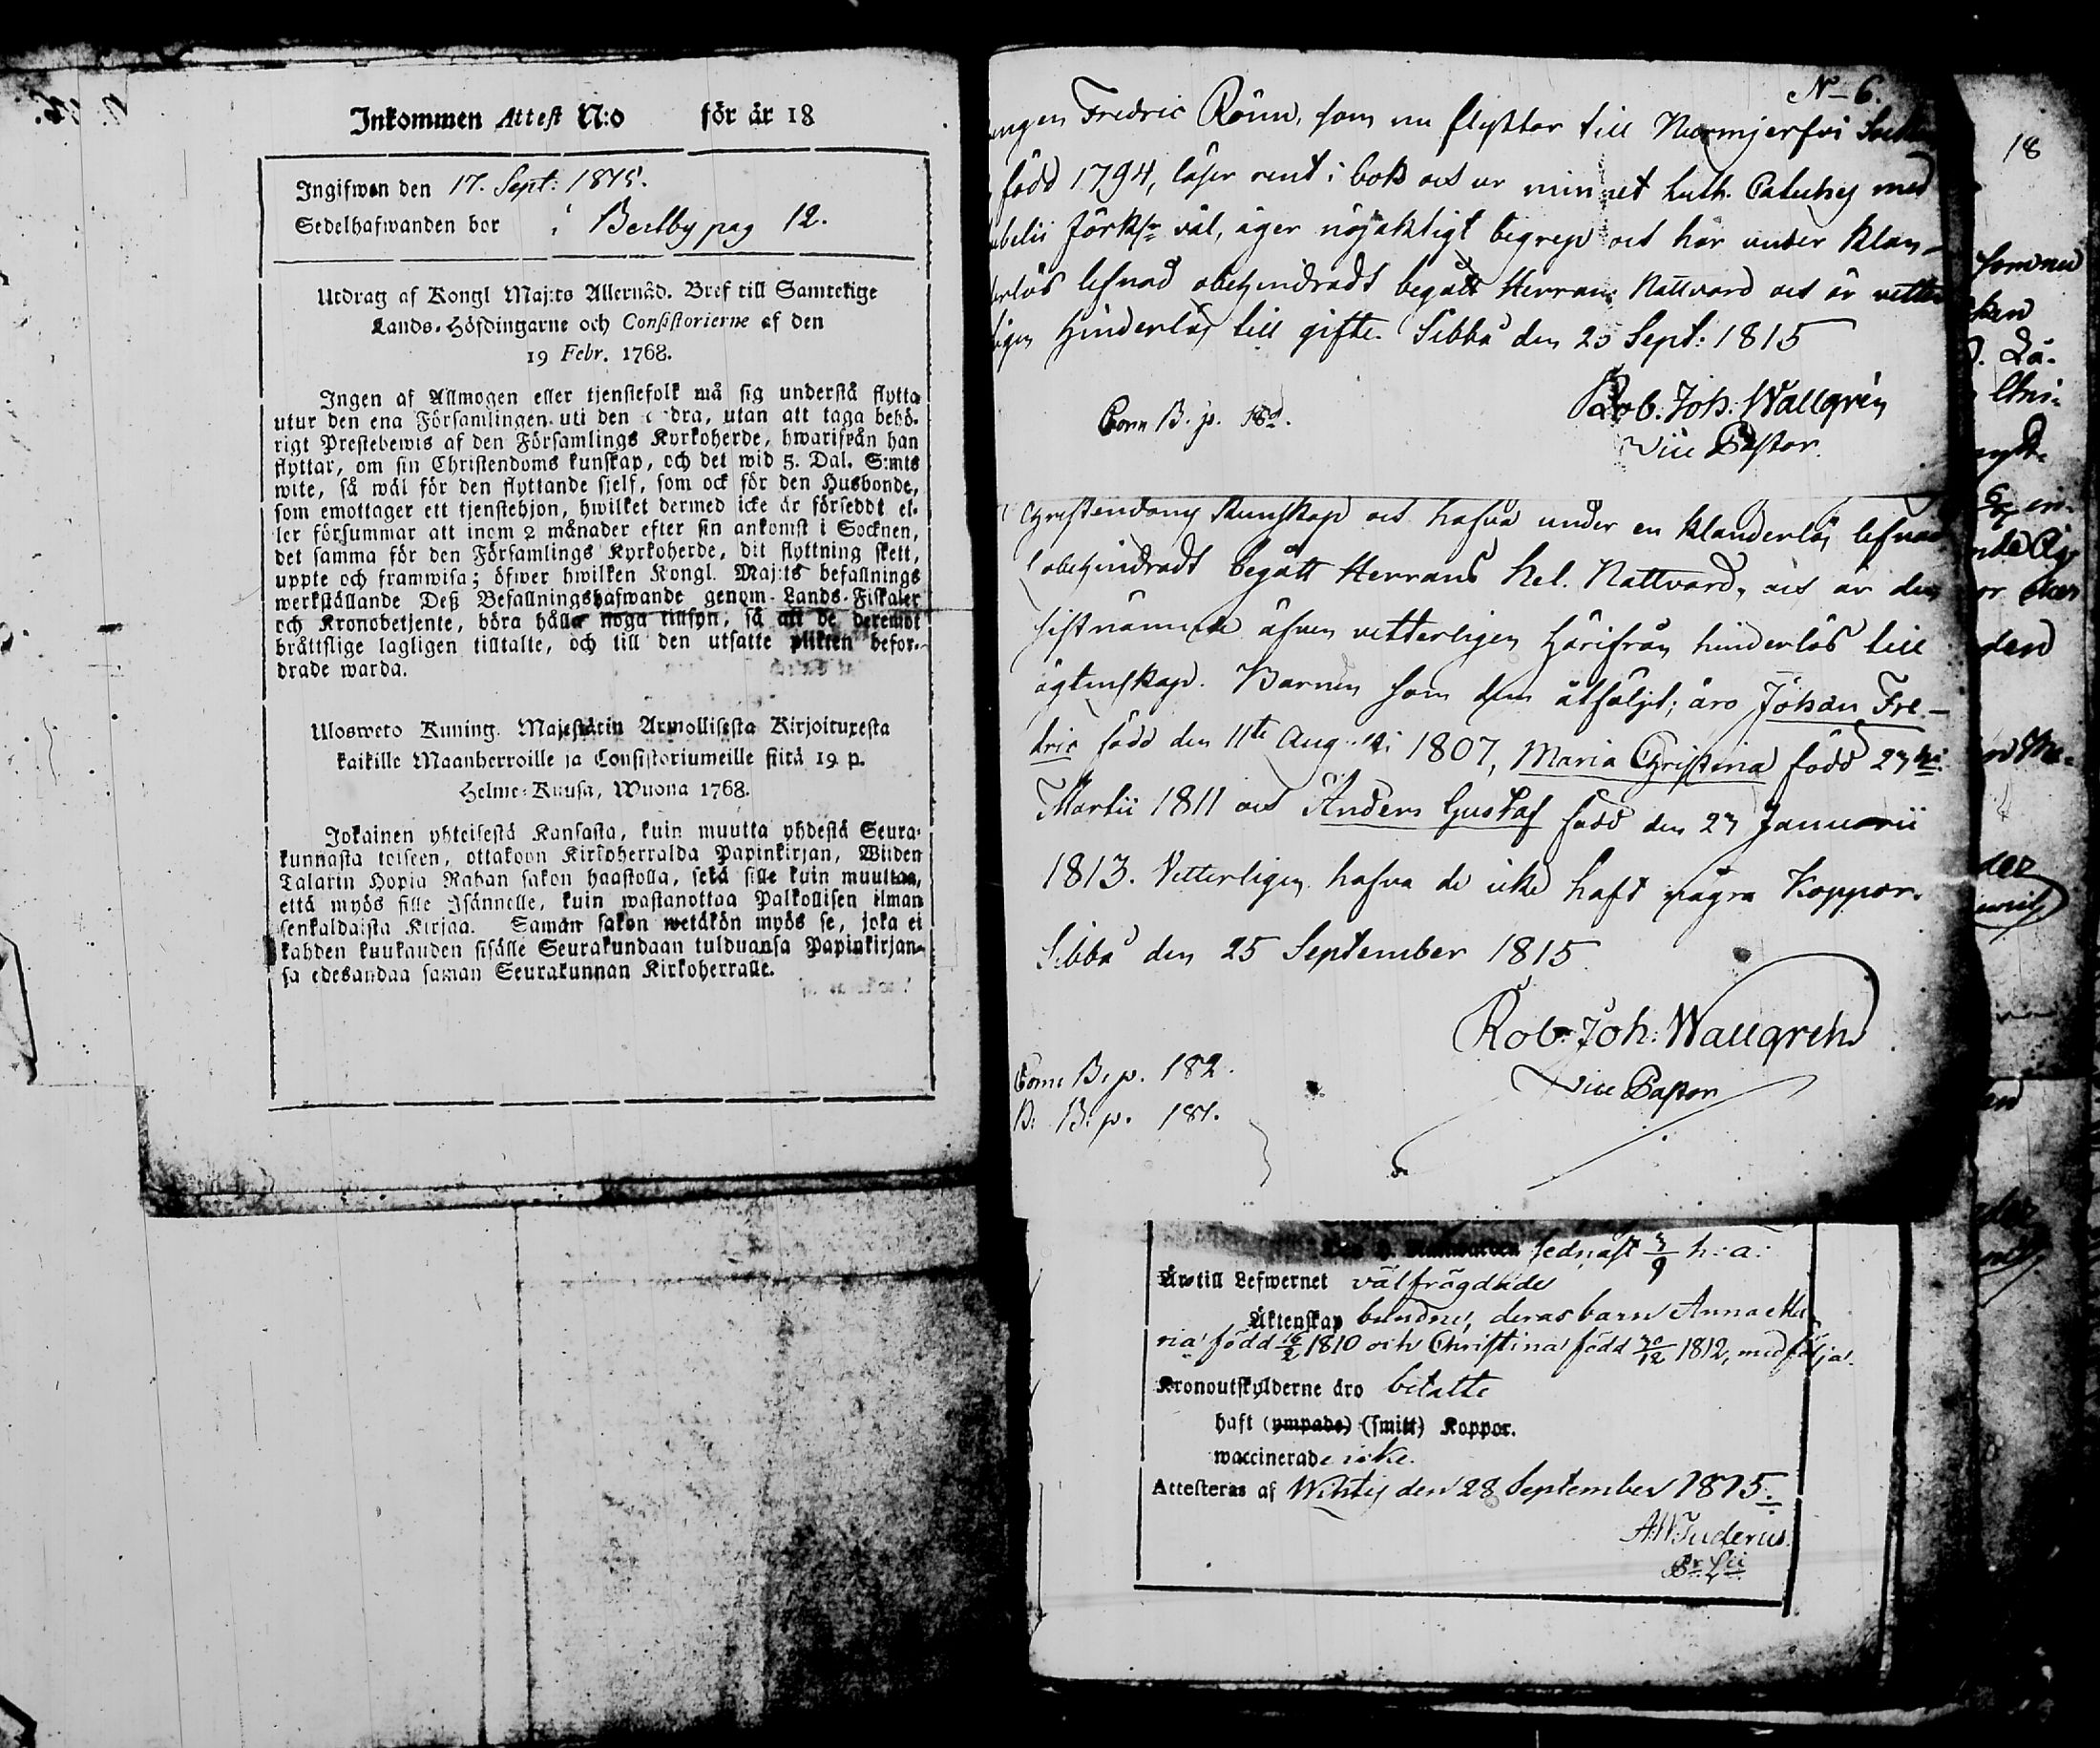 Inkommen Attest N:o för år 18
Ingifwen den 17. Sept: 1815.
Sedelhafwanden bor i Bertby pag 12.
Utdrag af Kongl Maj:ts Allernåd. Bref till Samtelige
Lands-Höfdingarne och Consistorierne af den
19 Febr. 1768.
Ingen af Allmogen eller tjenstefolk må sig understå flytta
utur den ena Församlingen uti den dra, utan att taga behö-
rigt Prestebewis af den Församlings Kyrkoherde, hwarifrån han
flyttar, om sin Christendoms kunskap, och det wid 5. Dal. S:mts
wite, så wäl för den flyttande sjelf, som ock för den Husbonde,
som emottager ett tjenstehjon, hwilket dermed icke är förseddt el-
ler försummar att inom 2 månader efter sin ankomst i Socknen,
det samma för den Församlings Kyrkoherde, dit flyttning skett,
uppte och framwisa; öfwer hwilken Kongl. Maj:ts befallnings
werkställande Deß Befallningshafwande genom Lands-Fiskaler
och Kronobetjente, böra hålla noga tillsyn, så att de deremot
bråttslige lagligen tilltalte, och till den utsatte plikten befor-
drade warda.
Ulosweto Kuning. Majestätin Armollisesta Kirjoituxesta
kaikille Maanherroille ja Consistoriumeille siitä 19 p.
Helme-Kuusa, Wuona 1768.
Jokainen yhteisestä Kansasta, kuin muutta yhdestä Seura-
kunnasta toiseen, ottakoon Kirkoherralda Papinkirjan, Wiiden
Talarin Hopia Rahan sakon haastolla, sekä sille kuin muuttaa,
että myös sille Isännelle, kuin wastanottaa Palkollisen ilman
senkaldaista Kirjaa. Saman sakon wetäkön myös se, joka ei
kahden kuukauden sisälle Seurakundaan tulduansa Papinkirjan-
sa edesandaa saman Seurakunnan Kirkoherralle.
N 6.
ngen Fredric Rönn, som nu flyttar till Nurmjerfvi Sockn
född 1794, läser rent i bok och ur minnet Luth. Catechs med
belii Förkl:r väl, äger nöjaktigt begrep och har under klan-
derlös lefnad obehindradt begått Herrans Nattvard och är vetter
ligen hinderlös till gifte. Sibbå den 25 Sept: 1815
Rob. Joh. Wallgrén
Vice Pastor.
Comm B. p. 182.
Christendoms Kunskap och hafva under en klanderlös lefnad
obehindradt begått Herrans hel. Nattvard, och är den
sistnämnde äfven vetterligen härifrån hinderlös till
ägtenskap. Barnen som dem åtföljt; äro Johan Fre-
dric född den 11te Augusti 1807, Maria Christina född 27
Martii 1811 och Anders Gustaf född den 27 Januarii
1813. Vetterligen hafva de icke haft några Koppor.
Sibbå den 25 September 1815
Rob. Joh: Wallgrén
Vice Pastor
Comm B. p. 182.
B: B: p. 181.
sednast 3/9 h: a:
Äro till Lefwernet välfrägdade
Äktenskap bundne, deras barn Anna Ma
ria född 16/2 1810 och Christina född 30/12 1812, medfölja.
Kronoutskylderne äro betalte
haft (ympade) (smitt) Koppor.
waccinerade icke.
Attesteras af Wihtis den 28 September 1815.
18
som nu